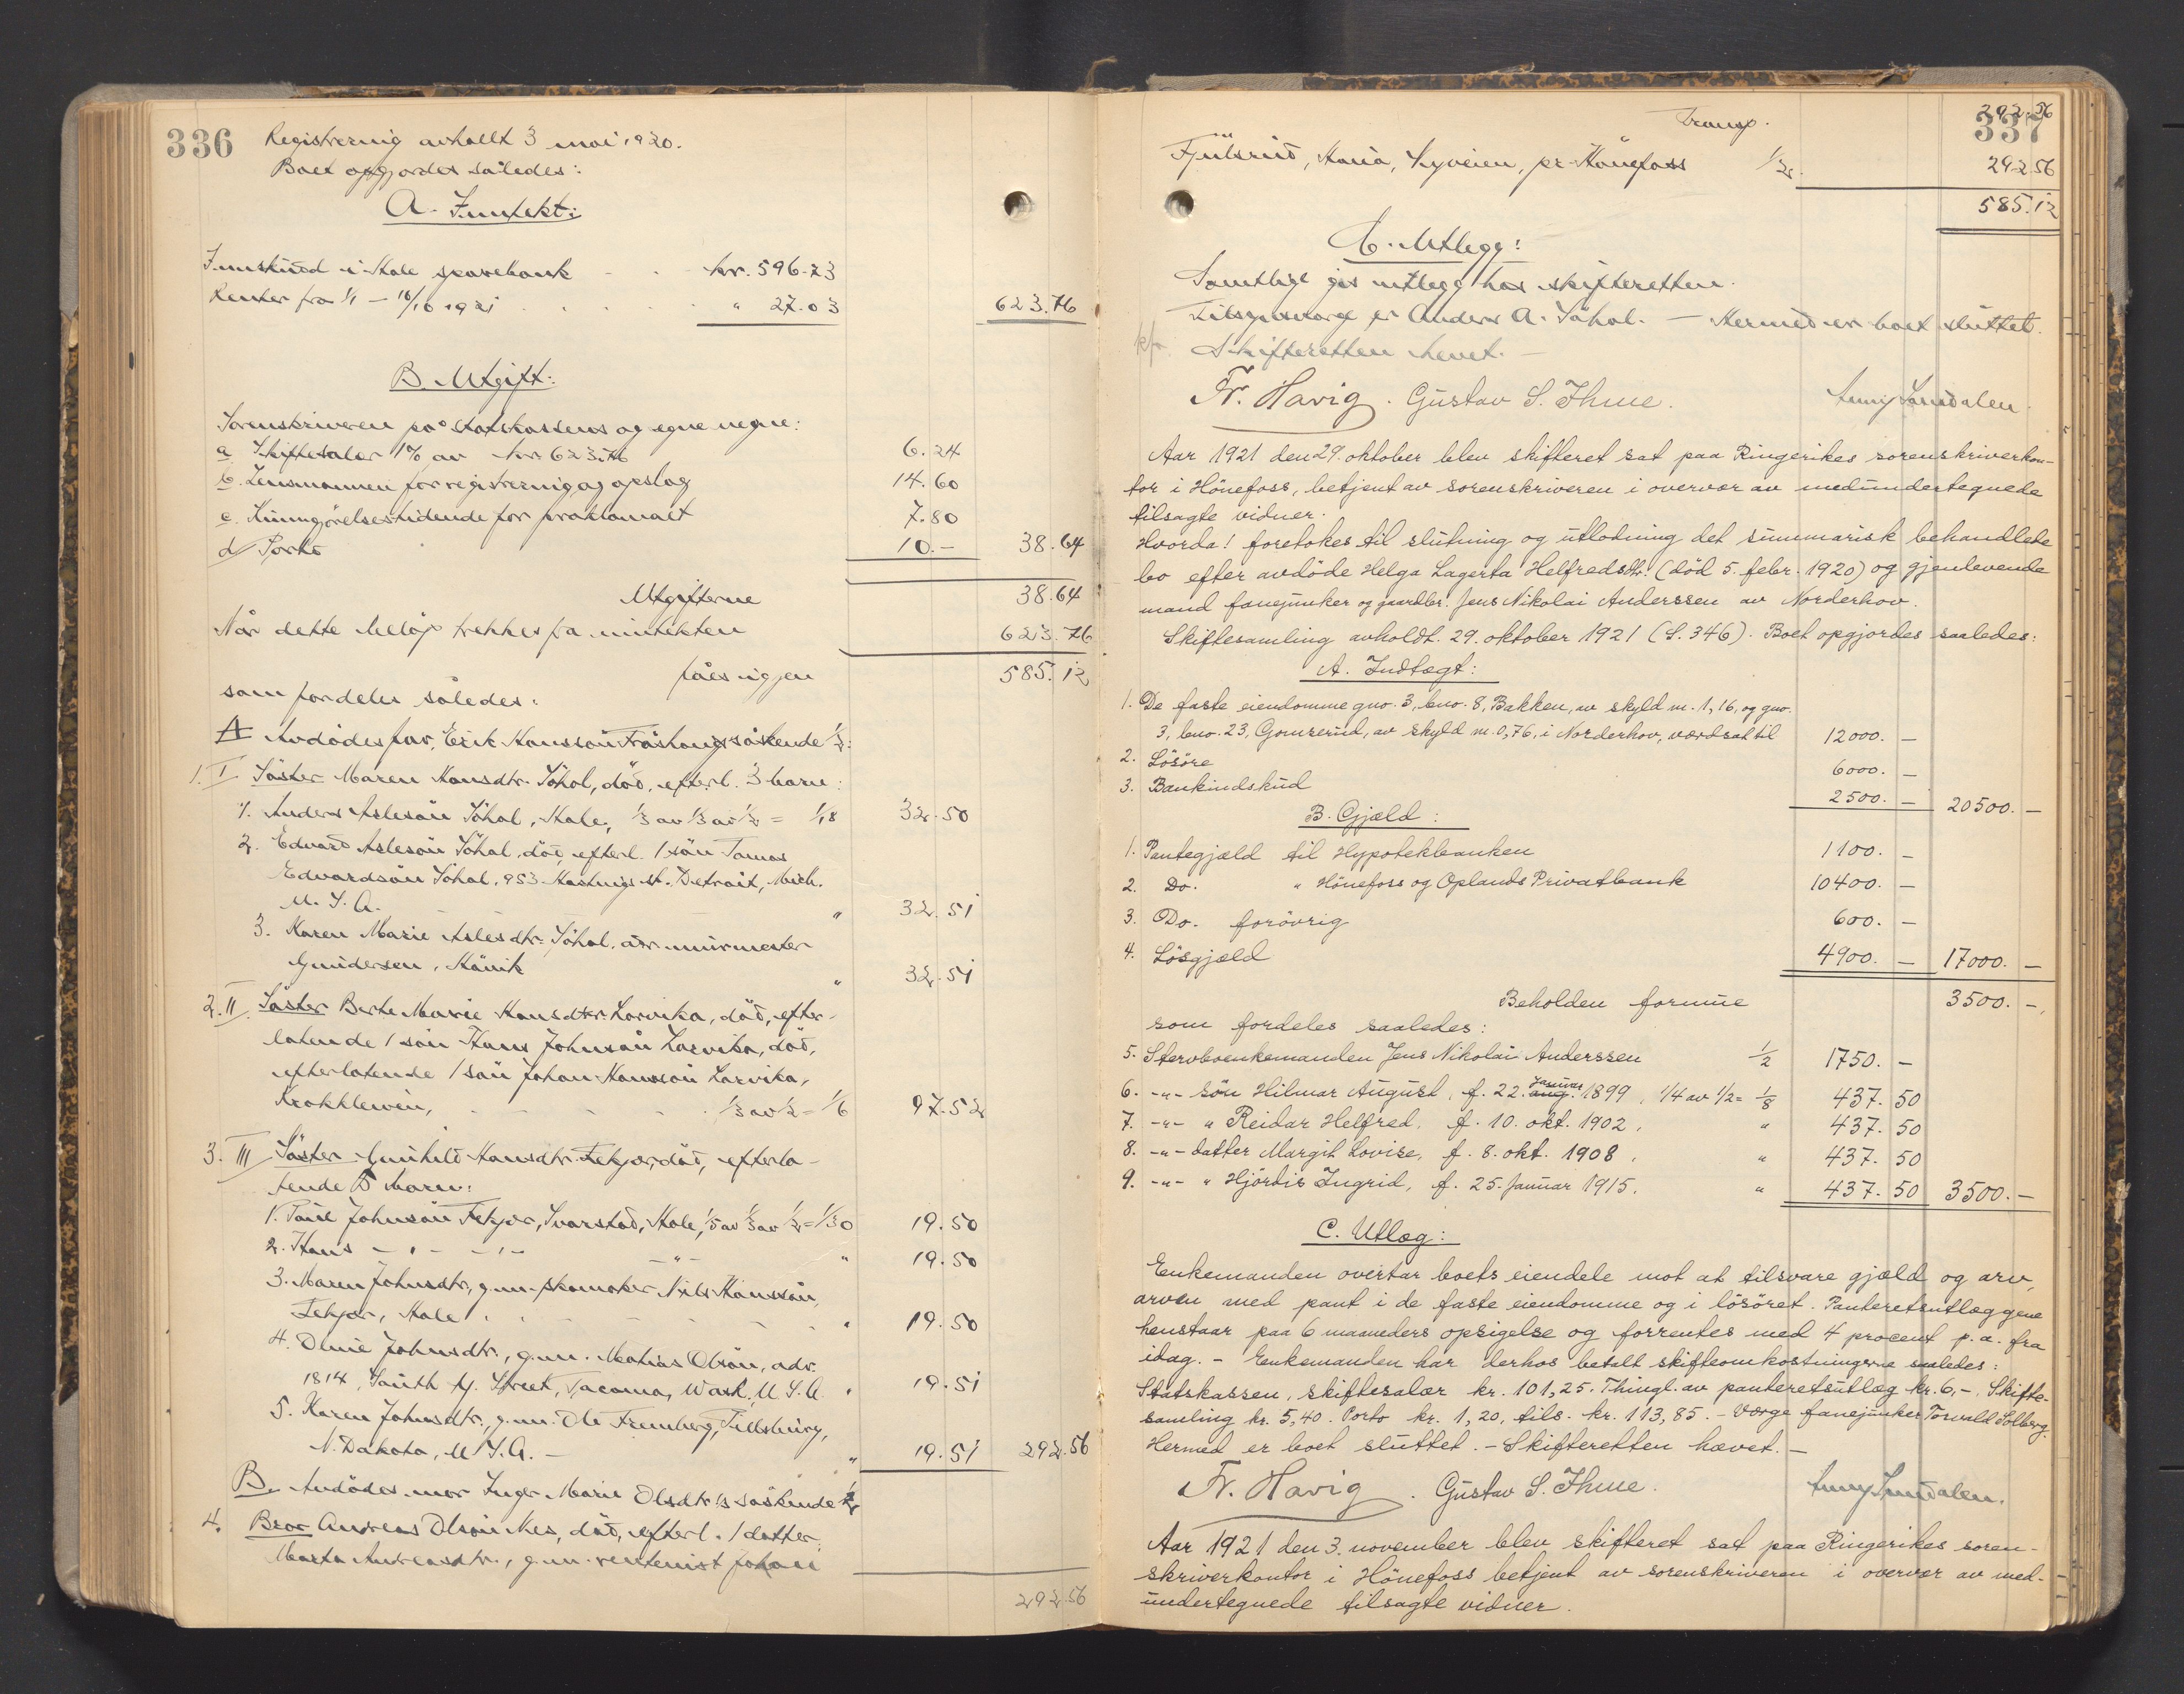 336
Registrering avholdt 3 mai 1920.
Boet opgjordes således:
A. Inntekt:
Innskudd i Hole sparebank kr. 596.73
Renter fra 1/1 - 10/10 1921 " 27.03 623.76
B. Utgift:
Sorenskriveren på statskassens og egne vegne:
a Skiftesalær 1% av kr. 623.76 6.24
b. Lensmannen for registrering og opslag 14.60
c. Kunngjörelsestidende for proklamaet 7.80
d/ Porto 10.- 38.64
Utgifterne 38.64
Når dette belöp trekkes fra inntekten 623.76
fåes igjen 585.12
som fordeles således:
A Avdödes far, Erik Hanssön söskende 1/2:
1. I Söster Maren Hansdtr. Söhol, död, efterl. 3 barn:
1. Anders Aslesön Söhol, Hole, 1/3 av 1/3 av 1/2 = 1/18 32.50
2. Edvard Aslesön Söhol, död, efterl. 1 sön Tomas
Edvardsön Söhol, 953 Hastings st. Detroit, Mich.
U. S. A. " 32.51
3. Karen Marie Aslesdtr. Söhol, adr. murmester
Gundersen, Hönik " 32.51
2. II. Söster Berte Marie Hansdtr. Lorvika, död, efter-
latende 1 sön Hans Johnsön Lorvika, död,
efterlatende 1 sön Johan Hanssön Lorvika,
Krokkleven, 1/3 av 1/2 = 1/6 97.52
3. III Söster Gunhild Hansdtr. Fekjær, död, efterla-
tende 5 barn:
1. Paul Johnsön Fekjær, Svarstad, Hole, 1/5 av 1/3 av 1/2 = 1/30 19.50
2. Hans - " - - " - - " - " 19.50
3. Maren Johnsdtr., g.m. skomaker Nils Hanssön,
Fekjær, Hole " 19.50
4. Oline Johnsdtr., g.m. Mathias Olsön, adr.
1814, South Y. Street, Tacoma, Wash. U. S. A. " 19.51
5. Karen Johnsdtr., g.m. Ole Fremberg, Fillsburg,
N. Dakota, U. S. A. - " 19.51 292.56
B. Avdödes mor Inger Marie Olsdtr.'s söskende 1/2
4. Bror Andreas Olsön Nes, död, efterl. 1 datter,
Marta Andreasdtr., g.m. rentenist Johan
292.56
337
Transp. 292.56
Fjulsrud, Hønia, Hyveien, pr. Hönefoss 1/2. 292.56
585.12
C. Utlegg:
Samtlige gis utlegg hos skifteretten.
Tilsynsverge er Anders A. Söhol. - Hermed er boet sluttet.
Skifteretten hevet. -
Fr. Havig. Gustav S. Ihme. Anny Sundalen.
Aar 1921 den 29. oktober blev skifteret sat paa Ringerikes sorenskriverkon-
tor i Hönefoss, betjent av sorenskriveren i overvær av medundertegnede
tilsagte vidner.
Hvorda! foretokes til slutning og utlodning det summarisk behandlede
bo efter avdöde Helga Lagerta Helfredsdtr. (död 5. febr. 1920) og gjenlevende
mand fanejunker og gaardbr. Jens Nikolai Anderssen av Norderhov.
Skiftesamling avholdt. 29. oktober 1921 (S. 346). Boet opgjordes saaledes:
A. Indtægt:
1. De faste eiendomme gno. 3, bno. 8, Bakken, av skyld m. 1,16, og gno.
3, bno. 23, Gomrerud, av skyld m. 0,76, i Norderhov, værdsat til 12000. -
2. Lösöre 6000. -
3. Bankindskud 2500. - 20500. -
B. Gjæld:
1. Pantegjæld til Hypotekbanken 1100. -
2. Do. " Hönefoss og Oplands Privatbank 10400. -
3. Do. forövrig 600. -
4. Lösgjæld 4900. - 17000. -
Beholden formue 3500. -,
som fordeles saaledes:
5. Stervboenkemanden Jens Nikolai Anderssen 1/2 1750. -
6. -"- sön Hilmar August, f. 22. januar aug. 1899, 1/4 av 1/2 = 1/8 437.50
7. -"- " Reidar Helfred, f. 10. okt. 1902, " 437.50
8. -"- datter Margit Lovise, f. 8. okt. 1908, " 437.50
9. -"- " Hjördis Ingrid, f. 25. januar 1915, " 437.50 3500. -
C. Utlæg:
Enkemanden overtar boets eiendele mot at tilsvare gjæld og arv,
arven med pant i de faste eiendomme og i lösöret. Panteretsutlæggene
henstaar paa 6 maaneders opsigelse og forrentes med 4 procent p.a. fra
idag. - Enkemanden har derhos betalt skifteomkostningerne saaledes:
Statskassen, skiftesalær kr. 101,25. Thingl. av panteretsutlæg kr. 6,-. Skifte-
samling kr. 5,40. Porto kr. 1,20, tils. kr. 113,85. - Værge fanejunker Torvald Solberg.
Hermed er boet sluttet. - Skifteretten hævet. -
Fr. Havig. Gustav S. Ihme. Anny Sundalen.
Aar 1921 den 3. november blev skifteret sat paa Ringerikes soren-
skriverkontor i Hönefoss betjent av sorenskriveren i overvær av med-
undertegnede tilsagte vidner.